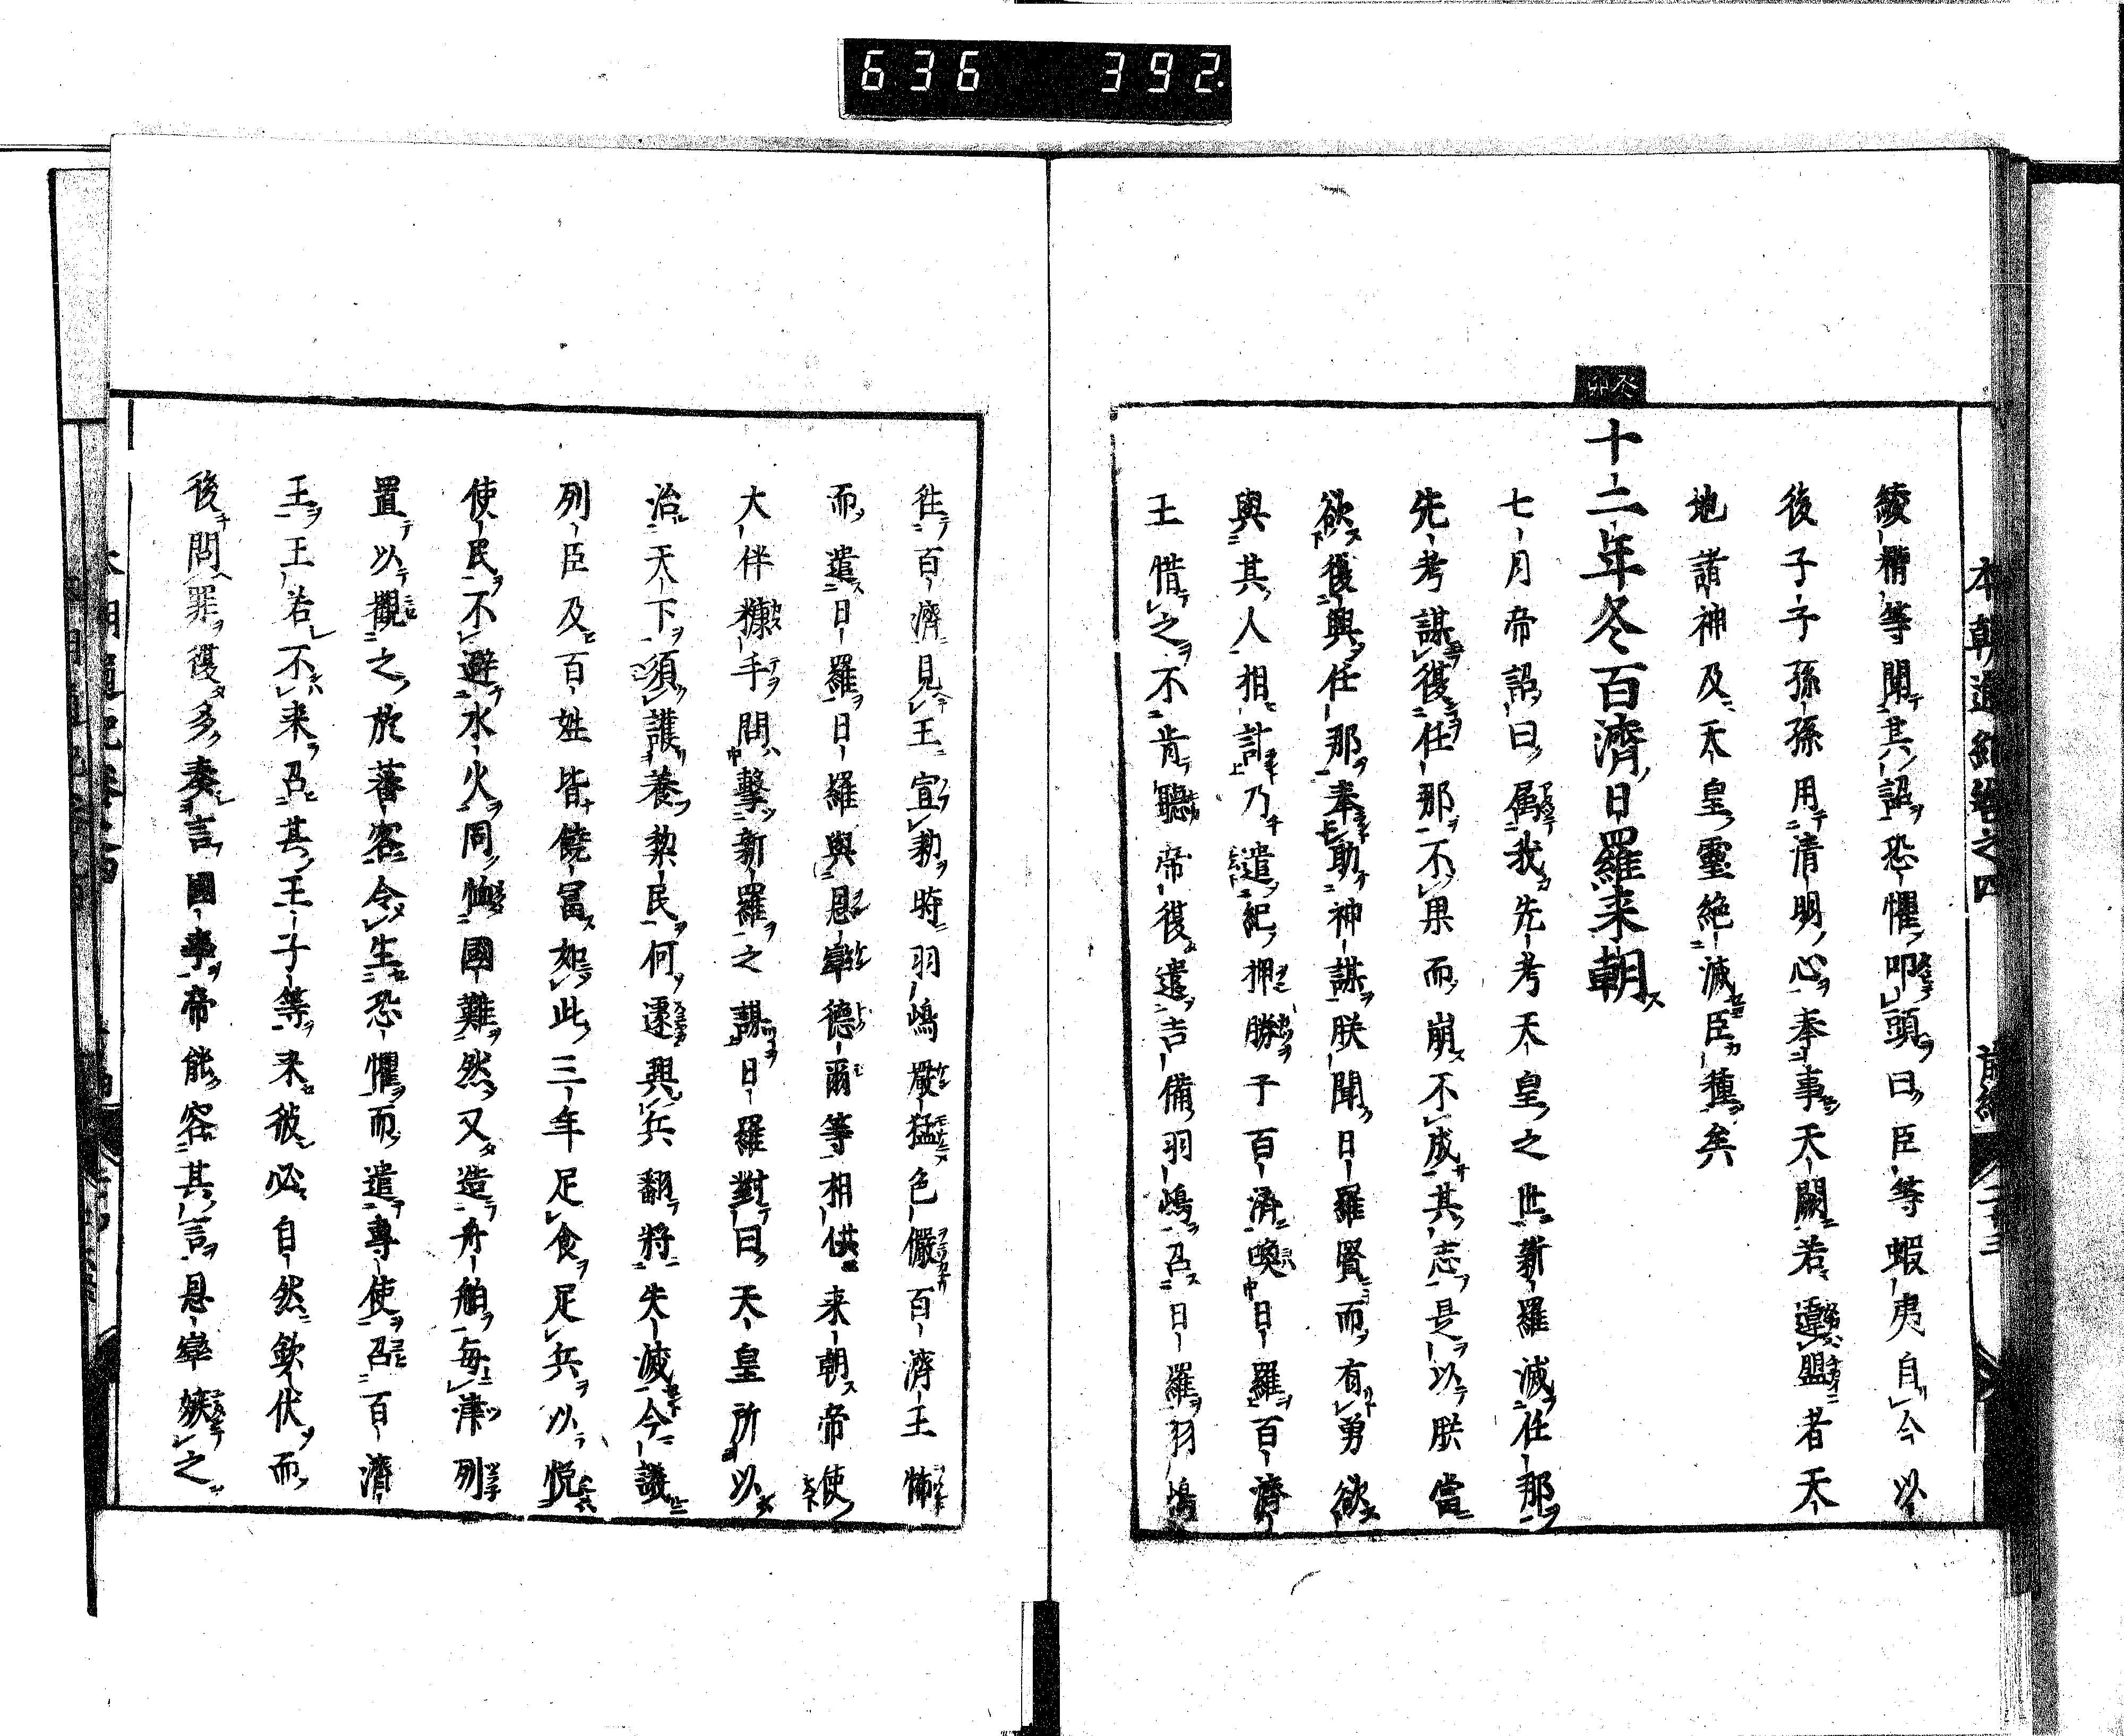 636 392.
本朝通紀巻之四 前編
綾糟等聞其詔恐懼叩頭曰臣等蝦夷自今以
後子子孫孫用清明心奉事天闕若違盟者天
地諸神及天皇霊絶滅臣種矣
癸卯
十二年冬百濟日羅来朝
七月帝詔曰属我先考天皇之世新羅滅任那
先考謀復任那不果而崩不成其志是以朕當
欲復興任那奉助神謀朕聞日羅賢而有勇欲
與其人相計乃遣紀押勝于百濟喚日羅百濟
王惜之不肯聽帝復遣吉備羽嶋召日羅羽嶋
往百濟見王宣勅時羽嶋嚴猛色儼百濟王怖
而遣日羅日羅與恩率德爾等相供来朝帝使
大伴糠手問擊新羅之謀日羅對曰天皇所以
治天下須護養黎民何遽興兵翻將失滅今議
列臣及百姓皆饒冨如此三年足食足兵以悦
使民不避水火同恤國難然又造舟舶毎津列
置以觀之於蕃客令生恐懼而遣專使召百濟
王王若不来召其王子等来彼必自然欽伏而
後問罪復多奏言國事帝能容其言恩率嫉之